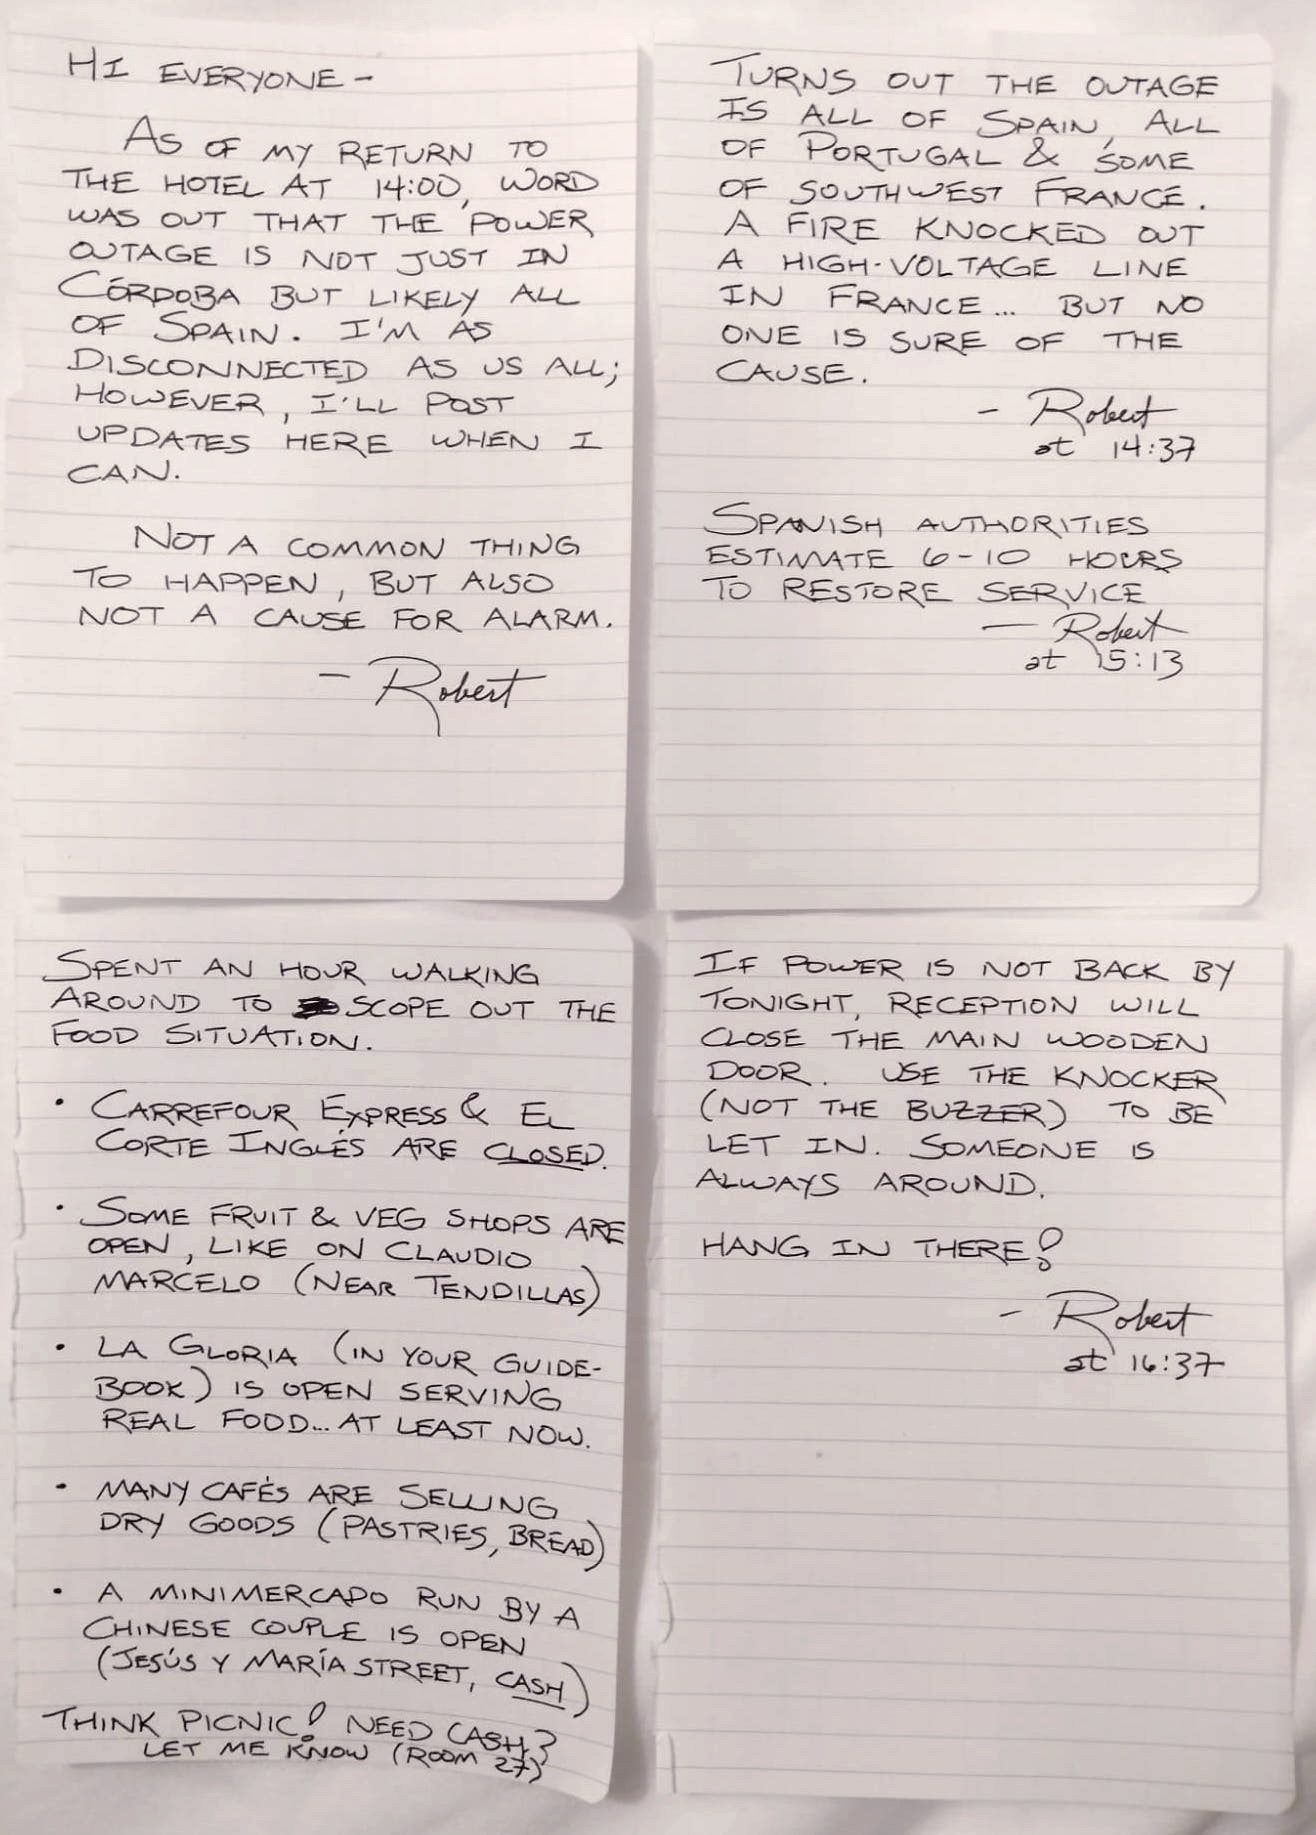 HI EVERYONE -
AS OF MY RETURN TO
THE HOTEL AT 14:00, WORD
WAS OUT THAT THE POWER
OUTAGE IS NOT JUST IN
CÓRDOBA BUT LIKELY ALL
OF SPAIN. I'M AS
DISCONNECTED AS US ALL;
HOWEVER, I'LL POST
UPDATES HERE WHEN I
CAN.
NOT A COMMON THING
TO HAPPEN, BUT ALSO
NOT A CAUSE FOR ALARM.
- Robert
TURNS OUT THE OUTAGE
IS ALL OF SPAIN, ALL
OF PORTUGAL & SOME
OF SOUTHWEST FRANCE.
A FIRE KNOCKED OUT
A HIGH-VOLTAGE LINE
IN FRANCE... BUT NO
ONE IS SURE OF THE
CAUSE.
- Robert
at 14:37
SPANISH AUTHORITIES
ESTIMATE 6-10 HOURS
TO RESTORE SERVICE
- Robert
at 15:13
SPENT AN HOUR WALKING
AROUND TO SCOPE OUT THE
FOOD SITUATION.
• CARREFOUR EXPRESS & EL
CORTE INGLÉS ARE CLOSED.
• SOME FRUIT & VEG SHOPS ARE
OPEN, LIKE ON CLAUDIO
MARCELO (NEAR TENDILLAS)
• LA GLORIA (IN YOUR GUIDE-
BOOK) IS OPEN SERVING
REAL FOOD... AT LEAST NOW.
• MANY CAFÉS ARE SELLING
DRY GOODS (PASTRIES, BREAD)
• A MINIMERCADO RUN BY A
CHINESE COUPLE IS OPEN
(JESÚS Y MARÍA STREET, CASH)
THINK PICNIC! NEED CASH?
LET ME KNOW (ROOM 27)
IF POWER IS NOT BACK BY
TONIGHT, RECEPTION WILL
CLOSE THE MAIN WOODEN
DOOR. USE THE KNOCKER
(NOT THE BUZZER) TO BE
LET IN. SOMEONE IS
ALWAYS AROUND.
HANG IN THERE!
- Robert
at 16:37